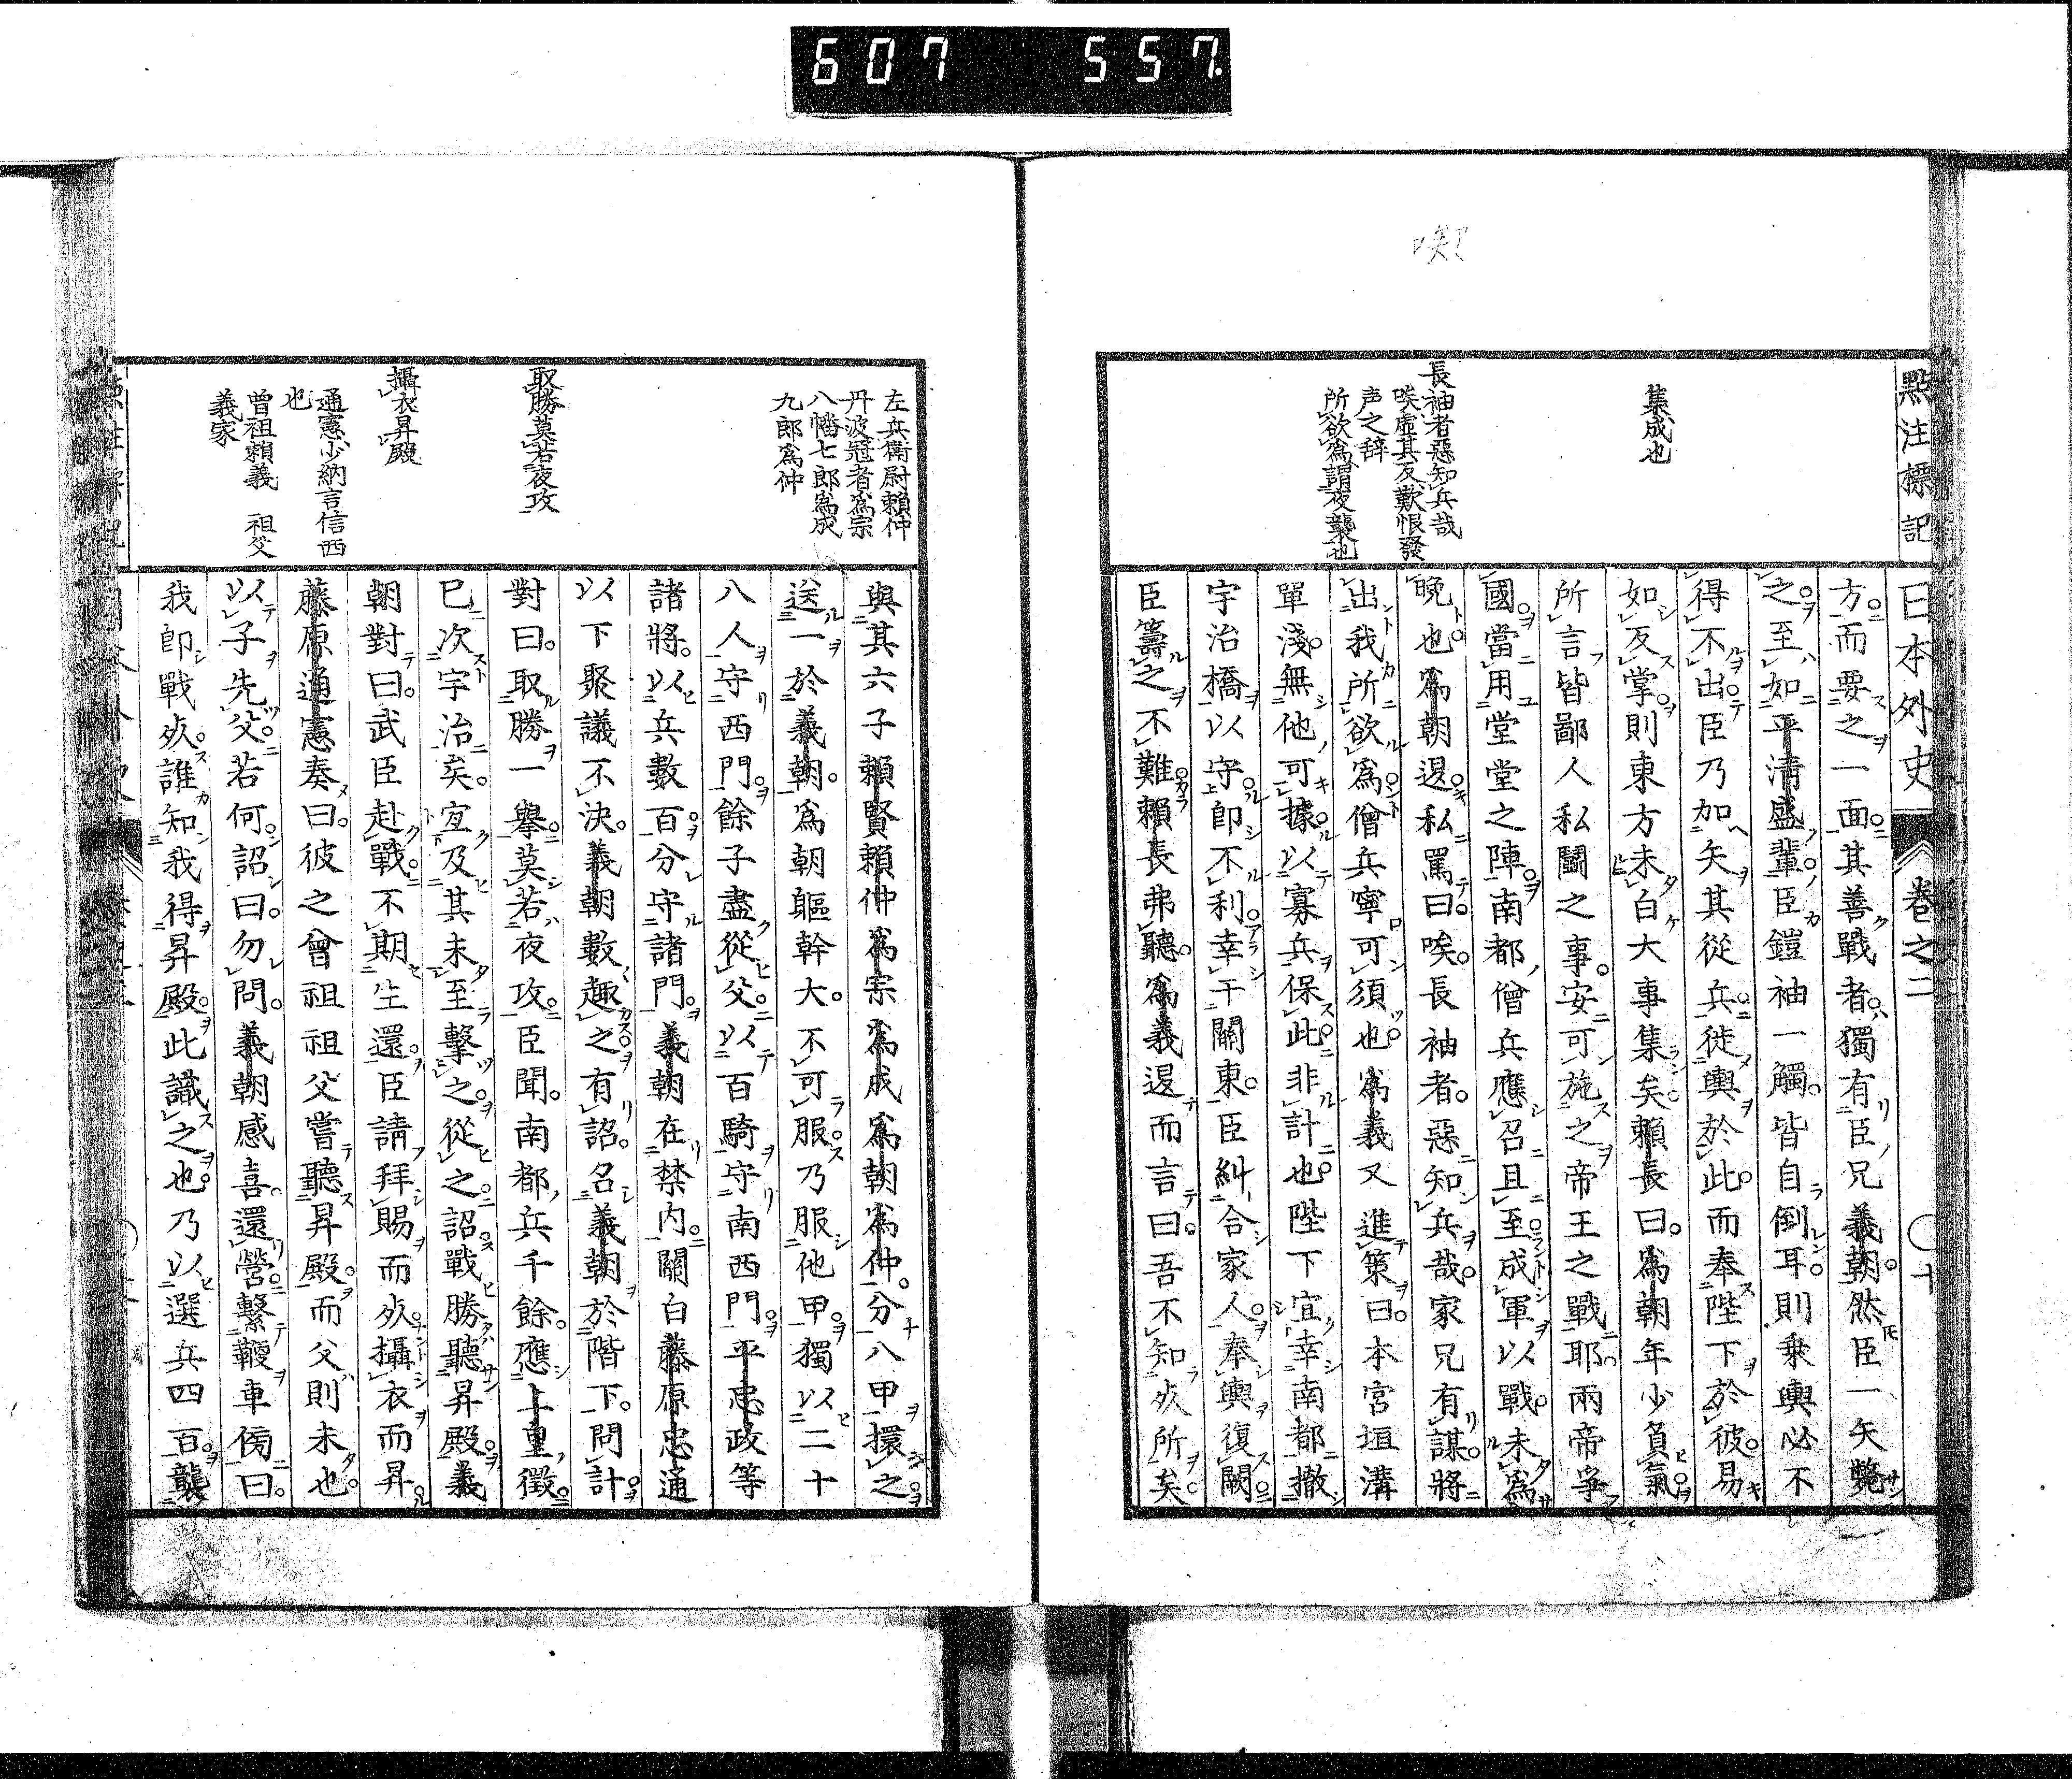 607 557
點注標記
日本外史 卷之二 ○十
集成也
長袖者惡知兵哉
唉虛其反歎恨發
声之辞
所欲爲謂夜襲也
方而要之一面其善戰者獨有臣兄義朝然臣一矢斃
之至如平清盛輩臣鎧袖一觸皆自倒耳則乗輿必不
得不出臣乃加矢其從兵徙輿於此而奉陛下於彼易
如反掌則東方未白大事集矣賴長曰爲朝年少負氣
所言皆鄙人私鬪之事安可施之帝王之戰耶兩帝爭
國當用堂堂之陣南都僧兵應召且至成軍以戰未爲
晩也爲朝退私罵曰唉長袖者惡知兵哉家兄有謀將
出我所欲爲僧兵寧可須也爲義又進策曰本宮垣溝
單淺無他可據以寡兵保此非計也陛下宜幸南都撤
宇治橋以守卽不利幸于關東臣糾合家人奉輿復闕
臣籌之不難賴長弗聽爲義退而言曰吾不知死所矣
左兵衛尉賴仲
丹波冠者爲宗
八幡七郎爲成
九郎爲仲
取勝莫若夜攻
攝衣昇殿
通憲少納言信西
也
曾祖賴義 祖父
義家
與其六子賴賢賴仲爲宗爲成爲朝爲仲分八甲擐之
送一於義朝爲朝軀幹大不可服乃服他甲獨以二十
八人守西門餘子盡從父以百騎守南西門平忠政等
諸將以兵數百分守諸門義朝在禁内關白藤原忠通
以下聚議不決義朝數趣之有詔召義朝於階下問計
對曰取勝一擧莫若夜攻臣聞南都兵千餘應上皇徵
已次宇治矣宜及其未至擊之從之詔戰勝聽昇殿義
朝對曰武臣赴戰不期生還臣請拜賜而死攝衣而昇
藤原通憲奏曰彼之曾祖祖父嘗聽昇殿而父則未也
以子先父若何詔曰勿問義朝感喜還營繫鞭車傍曰
我卽戰死誰知我得昇殿此識之也乃以選兵四百襲